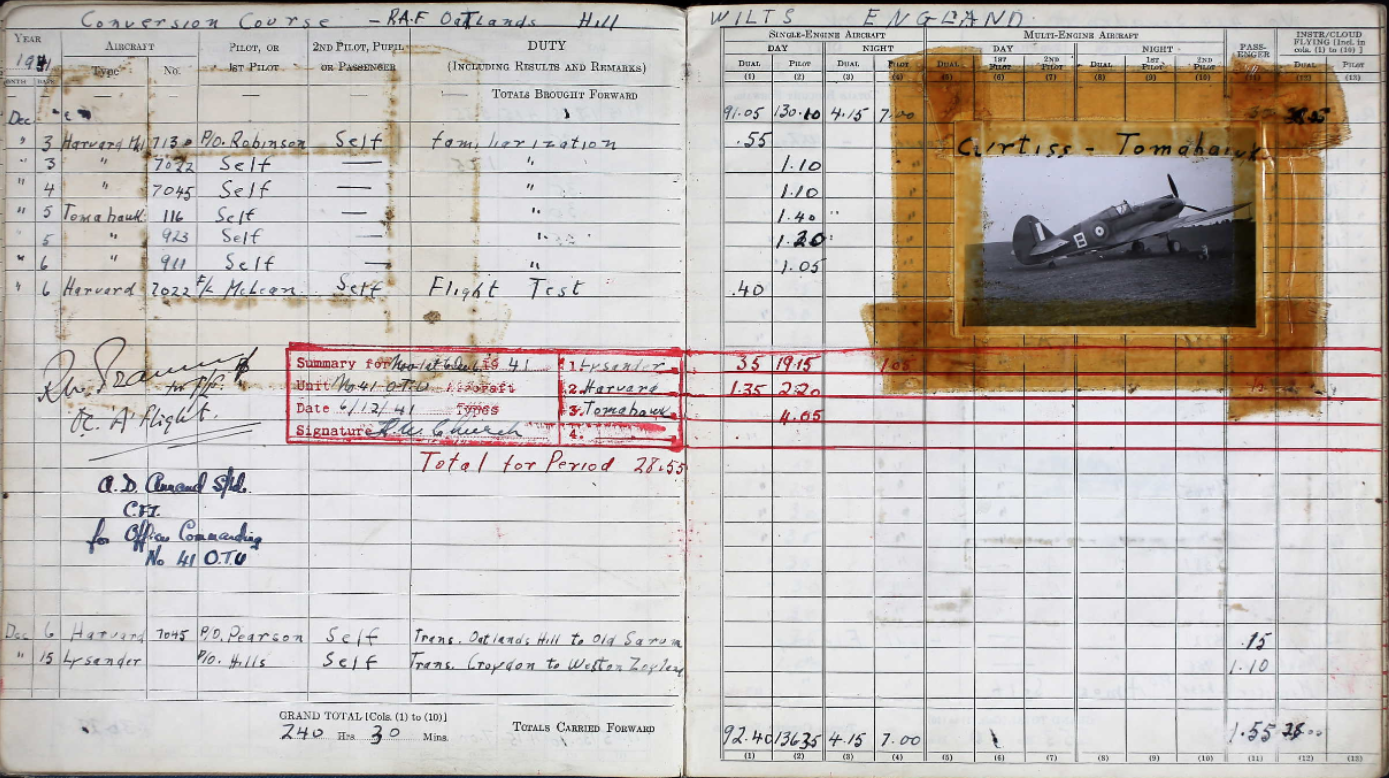 Conversion Course - RAF Oatlands Hill WILTS ENGLAND
YEAR AIRCRAFT PILOT, OR 2ND PILOT, PUPIL DUTY SINGLE-ENGINE AIRCRAFT MULTI-ENGINE AIRCRAFT PASS- INSTR/CLOUD
1941 1ST PILOT OR PASSENGER (INCLUDING RESULTS AND REMARKS) DAY NIGHT DAY NIGHT ENGER FLYING [Incl. in
cols. (1) to (10)]
MONTH DATE Type No. DUAL PILOT DUAL PILOT DUAL 1ST PILOT 2ND PILOT DUAL 1ST PILOT 2ND PILOT DUAL PILOT
(1) (2) (3) (4) (5) (6) (7) (8) (9) (10) (11) (12) (13)
— — — — — TOTALS BROUGHT FORWARD
Dec 91.05 130.10 4.15 7.00
" 3 Harvard 7130 P/O. Robinson Self familiarization .55
" 3 " 7022 Self — " 1.10
" 4 " 7045 Self — " 1.10
" 5 Tomahawk 116 Self — " 1.40
" 5 " 923 Self — " 1.20
" 6 " 911 Self — " 1.05
" 6 Harvard 7022 F/L McLean Self Flight Test .40
Curtiss - Tomahawk
B
Summary for Nov 1st to Dec 6 19 41 1. Lysander 35 19.15 1.05
Unit No 41 O.T.U Aircraft 2. Harvard 1.35 2.20
Date 6/12/41 Types 3. Tomahawk 4.05
Signature R.W. Church 4.
O.C. A flight.
Total for Period 28.55
A.D. Annand S/Ld.
C.F.I.
for Officer Commanding
No 41 O.T.U
Dec 6 Harvard 7045 P/O. Pearson Self Trans. Oatlands Hill to Old Sarum .15
" 15 Lysander P/o. Hills Self Trans. Croydon to Weston Zoyland 1.10
GRAND TOTAL [Cols. (1) to (10)]
240 Hrs 30 Mins. TOTALS CARRIED FORWARD 92.40 136.35 4.15 7.00 1.55
(1) (2) (3) (4) (5) (6) (7) (8) (9) (10) (11) (12) (13)